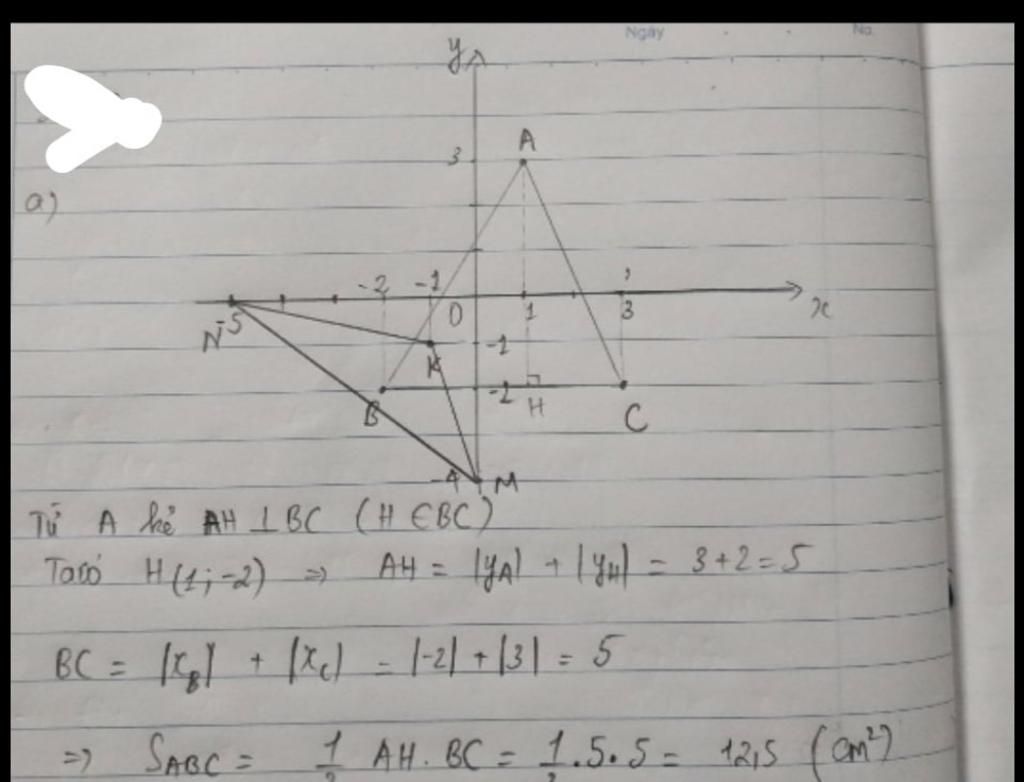 Ngày No.
y
A
3
a)
-2 -1
N -5 O 1 3 x
-1
K
-2 H
B C
-4 M
Từ A kẻ AH ⊥ BC (H ∈ BC)
Ta có H(1; -2) => AH = |y_A| + |y_H| = 3+2 = 5
BC = |x_B| + |x_C| = |-2| + |3| = 5
=> S_ABC = 1/2 AH. BC = 1/2 .5.5 = 12,5 (cm²)